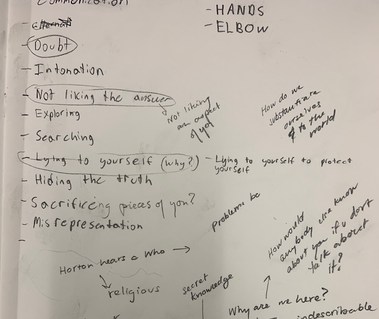 Communication
- HANDS
- ELBOW
- Doubt
- Intonation
- Not liking the answer
Not liking
an aspect
of you
- Exploring
How do we
substantiate
ourselves
to the
world
- Searching
- Lying to yourself (why?) - Lying to yourself to protect
yourself
- Hiding the truth
- Sacrificing pieces of you?
- Misrepresentation
problems be
How would
anybody use know
about you if u dont
talk about
it?
Horton hears a Who →
religious
secret
knowledge
Why are we here?
indescribable